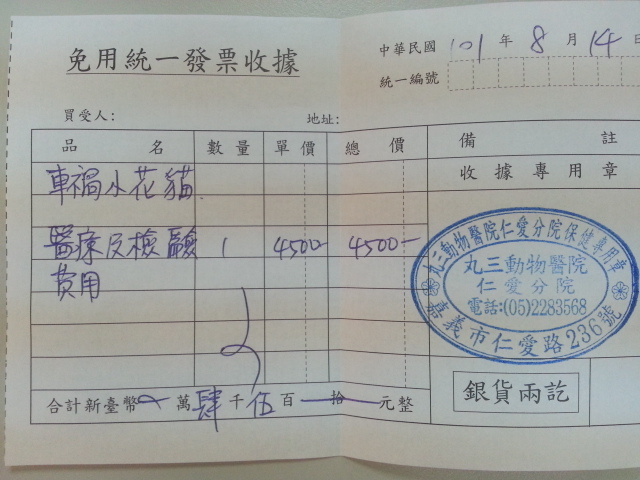 免用統一發票收據
中華民國 101 年 8 月 14 日
統一編號
買受人:
地址:
品名 數量 單價 總價 備註
收據專用章
車禍小花貓
醫療及檢驗 1 4500- 4500-
費用
丸三動物醫院仁愛分院保健專用章
丸三動物醫院
仁愛分院
電話:(05)2283568
嘉義市仁愛路236號
銀貨兩訖
合計新臺幣 萬肆千伍百 拾 元整